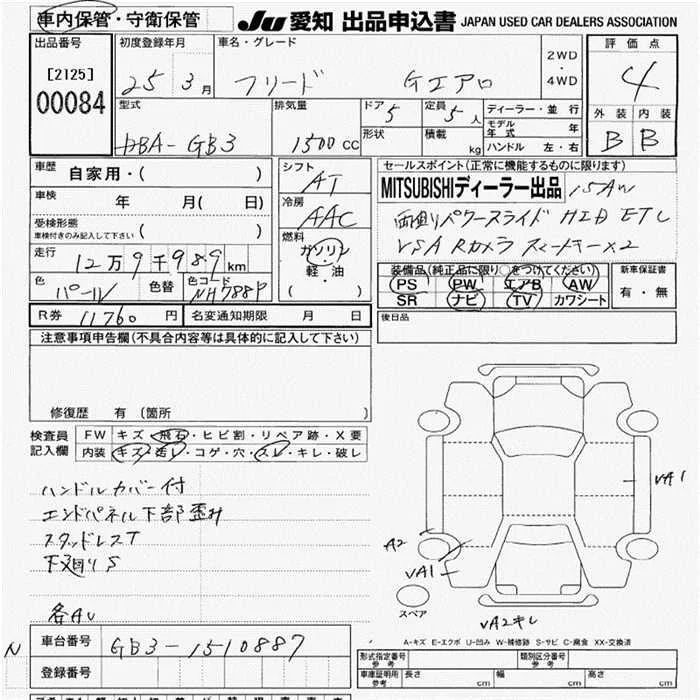 車内保管・守衛保管
JU 愛知 出品申込書 JAPAN USED CAR DEALERS ASSOCIATION
出品番号
[2125]
00084
初度登録年月
25年3月
車名・グレード
フリード Gエアロ
2WD
・
4WD
評価点
4
外装 内装
B B
型式
DBA-GB3
排気量
1500cc
ドア 5
形状
定員 5人
積載 kg
ディーラー・並行
モデル年式 年
ハンドル 左・右
車歴 自家用・( )
車検 年 月( 日)
受検形態
車検付きのみ記入して下さい ( )
走行
12万9千989km
色 パール 色替 色コード NH788P
シフト
AT
冷房
AAC
燃料
ガソリン
・
軽・油
( )
セールスポイント(正常に機能するものに限ります)
MITSUBISHIディーラー出品 15AW
両側パワースライド HID ETC
VSA Rカメラ スマートキー×2
装備品(純正品に限り○をつけてください)
PS PW エアB AW
SR ナビ TV カワシート
新車保証書
有・無
R券 11760円 名変通知期限 月 日
後日品
注意事項申告欄(不具合内容等は具体的に記入して下さい)
修復歴 有(箇所 )
検査員記入欄
FW キズ・飛石・ヒビ割・リペア跡・X要
内装 キズ・汚レ・コゲ・穴・スレ・キレ・破レ
ハンドルカバー付
エンドパネル下部歪み
スタッドレスT
下廻りS
各AU
VA1
A2
VA1
スペア
VA2キレ
A-キズ E-エクボ U-凹み W-補修跡 S-サビ C-腐食 XX-交換済
N 車台番号 GB3-1510887
登録番号
形式指定番号 参考
類別区分番号 参考
車庫証明用 参考 長さ cm 幅 cm 高さ cm